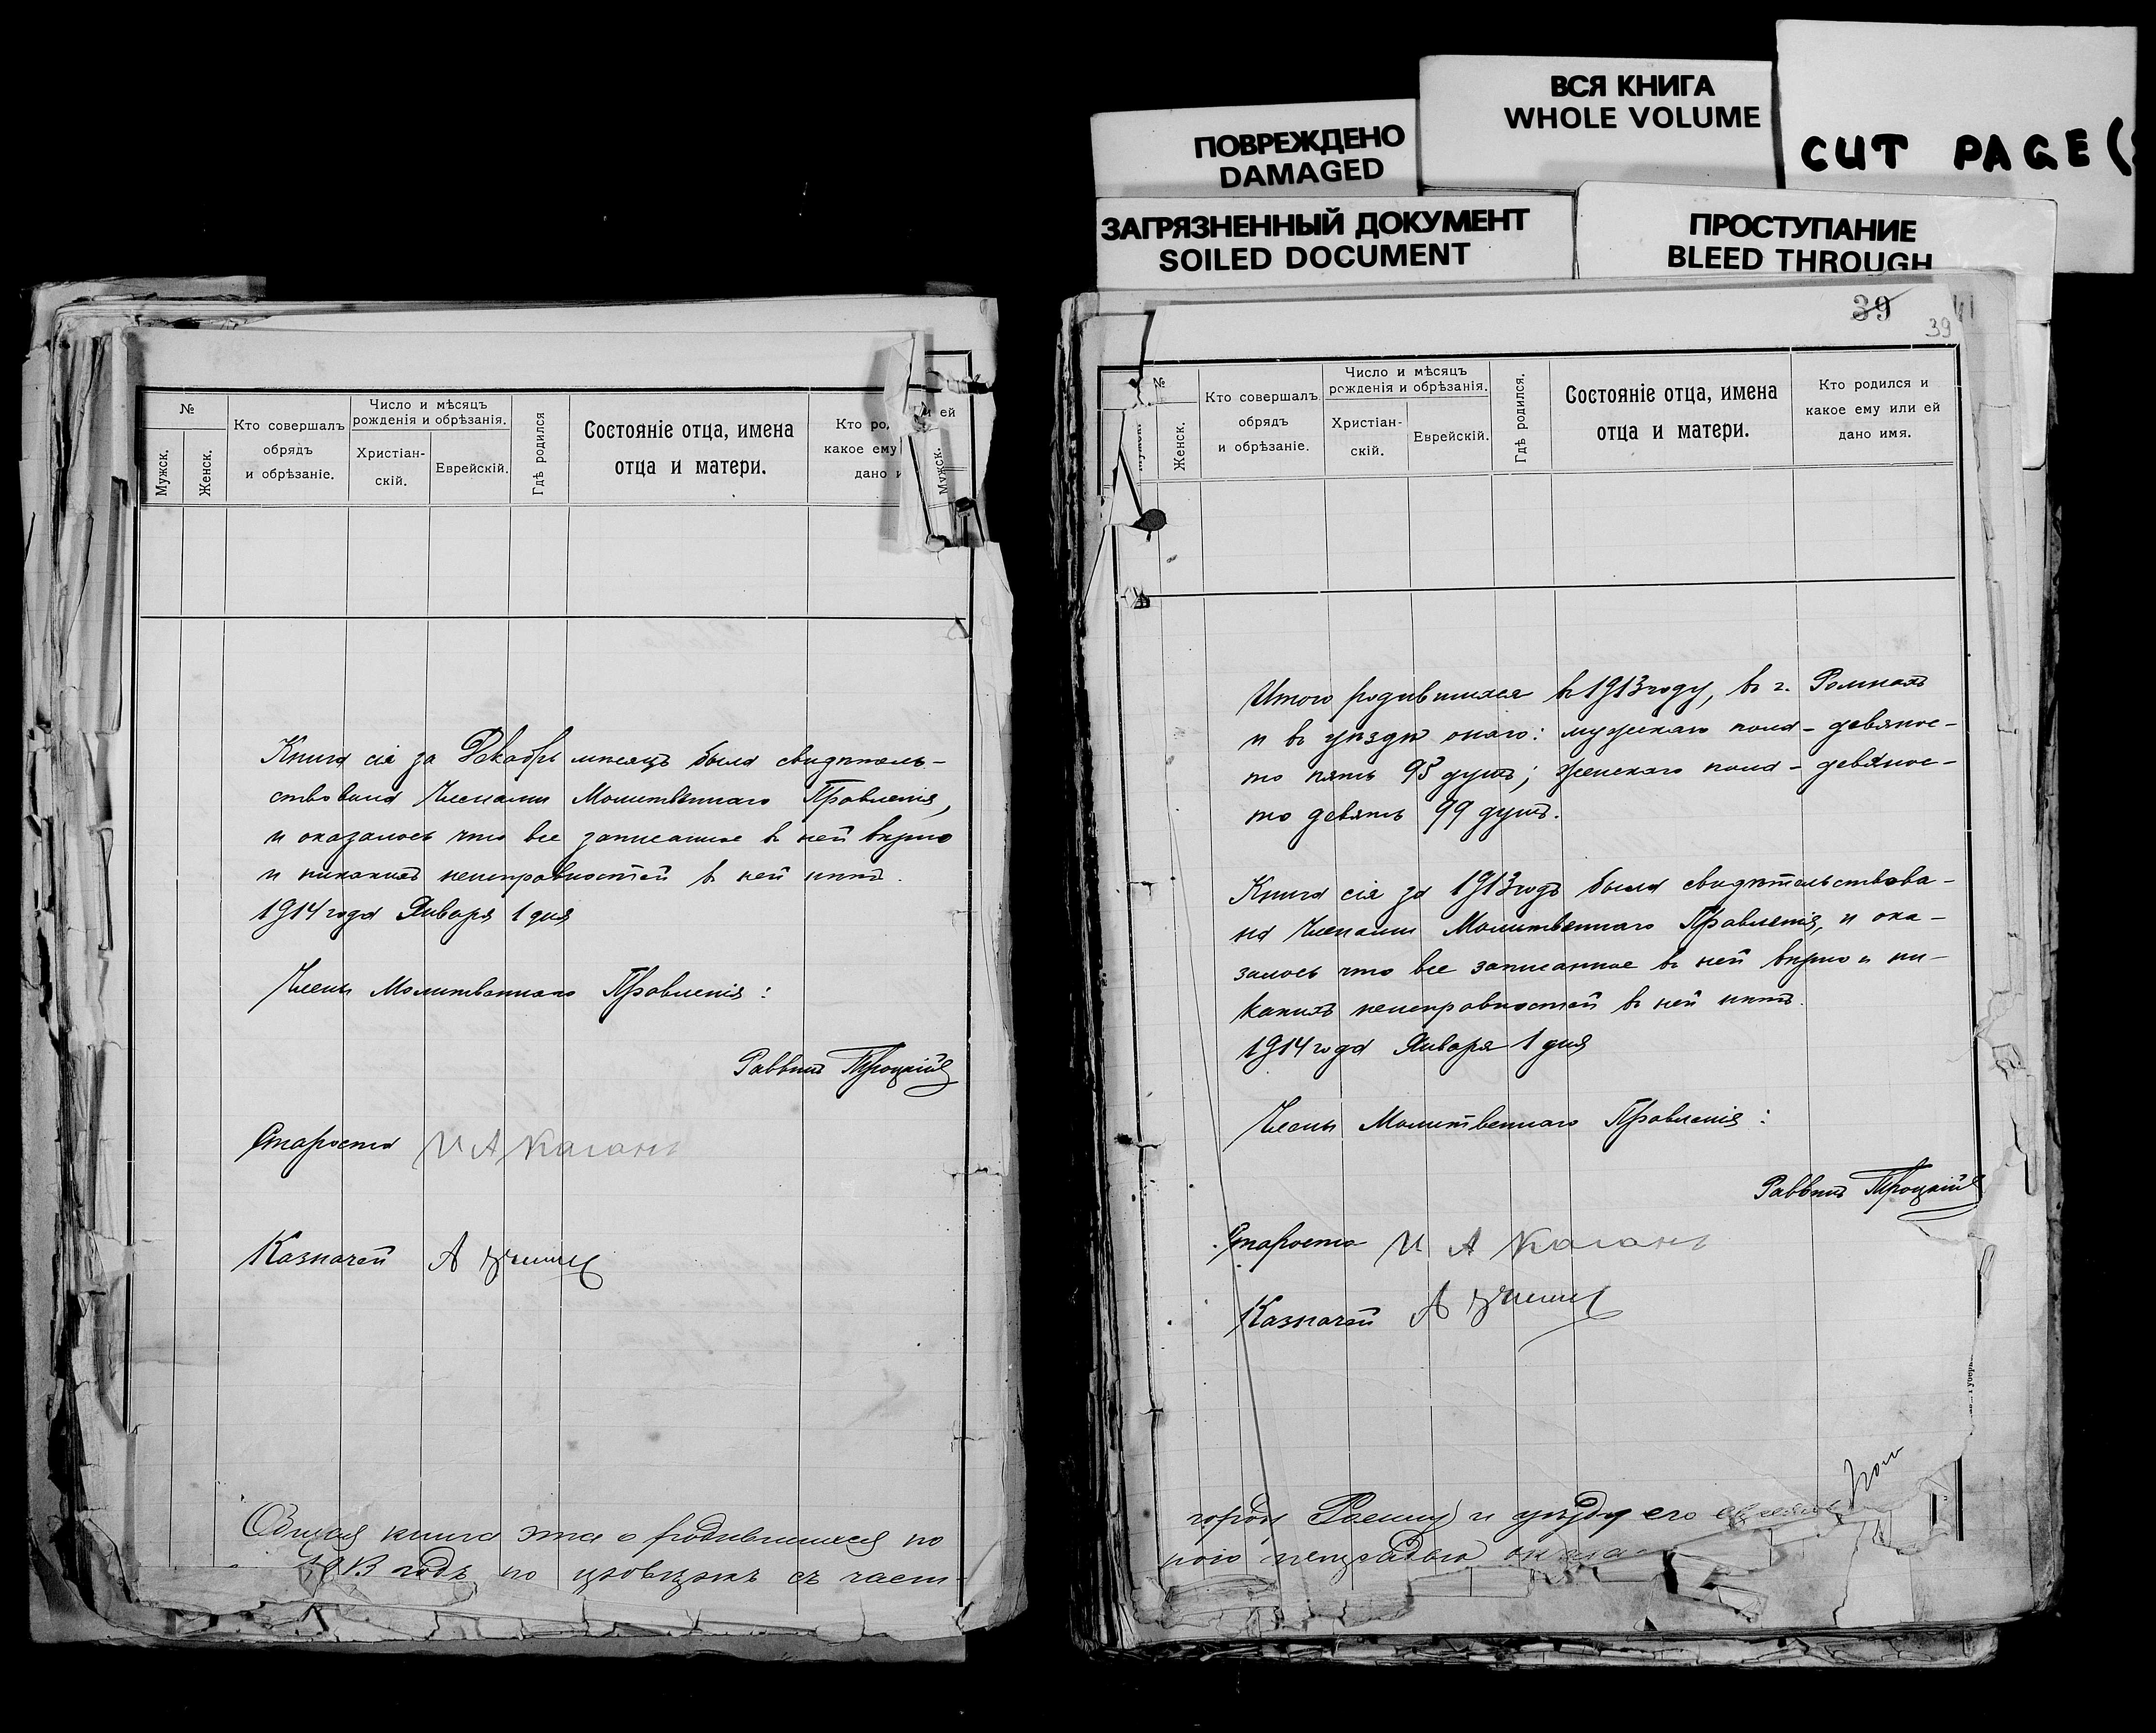 ПОВРЕЖДЕНО
DAMAGED
ВСЯ КНИГА
WHOLE VOLUME
CUT PAGE(
ЗАГРЯЗНЕННЫЙ ДОКУМЕНТ
SOILED DOCUMENT
ПРОСТУПАНИЕ
BLEED THROUGH
№
Мужск.
Женск.
Кто совершалъ
обрядъ
и обрѣзаніе.
Число и мѣсяцъ
рожденія и обрѣзанія.
Христіан-
скій.
Еврейскій.
Гдѣ родился
Состояніе отца, имена
отца и матери.
Кто ро
какое ему
дано и
и ей
Мужск.
Книга сія за Декабрь мѣсяцъ была свидѣтель-
ствована Членами Молитвеннаго Правленія,
и оказалось что все записанное въ ней вѣрно
и никакихъ неисправностей въ ней нѣтъ.
1914 года Января 1 дня
Члены Молитвеннаго Правленія:
Раввинъ Троцкій
Староста И А Каганъ
Казначей А
Общая книга эта о родившихся по
1913 годъ по
съ част-
39
39
41
№
Женск.
Кто совершалъ
обрядъ
и обрѣзаніе.
Число и мѣсяцъ
рожденія и обрѣзанія.
Христіан-
скій.
Еврейскій.
Гдѣ родился.
Состояніе отца, имена
отца и матери.
Кто родился и
какое ему или ей
дано имя.
Итого родившихся въ 1913 году, въ г. Ромнахъ
и въ уѣздѣ онаго: мужескаго пола - девянос-
то пять 95 душъ; женскаго пола - девянос-
то девять 99 душъ.
Книга сія за 1913 годъ была свидѣтельствова-
на Членами Молитвеннаго Правленія, и ока-
залось что все записанное въ ней вѣрно и ни-
какихъ неисправностей въ ней нѣтъ.
1914 года Января 1 дня
Члены Молитвеннаго Правленія:
Раввинъ Троцкій
Староста И А Каганъ
Казначей А
и уѣзду его